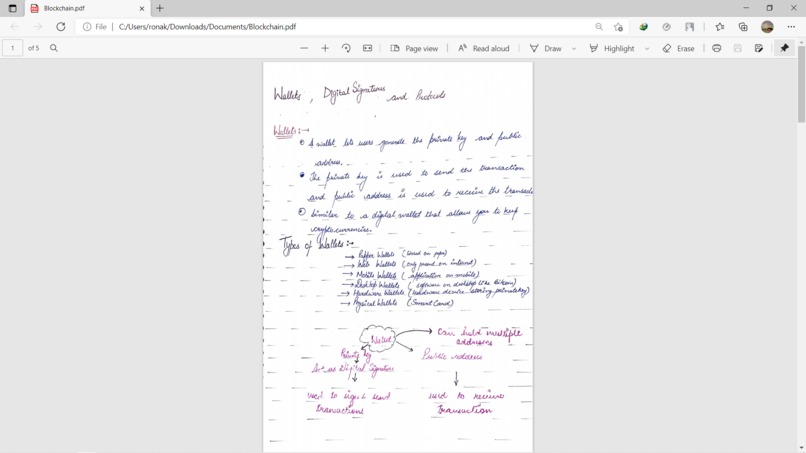 Blockchain.pdf
File
C:/Users/ronak/Downloads/Documents/Blockchain.pdf
1 of 5
Page view
Read aloud
Draw
Highlight
Erase
Wallets, Digital Signatures and Protocols
Wallets :→
A wallet lets users generate the private key and public
address.
The private key is used to send the transaction
and public address is used to receive the transac
Similar to a digital wallet that allows you to keep
cryptocurrencies.
Types of Wallets :-
→ Papper Wallets (based on paper)
→ Web Wallets (only present on internet)
→ Mobile Wallets (application on mobile)
→ Desktop Wallets (software on desktop like Bitcoin)
→ Hardware Wallets (Hardware device storing private key)
→ Physical Wallets (Smart Card)
Wallet
Can hold multiple
addresses
Private key
Public address
Act as Digital Signature
used to sign & send
transactions
used to receive
transaction